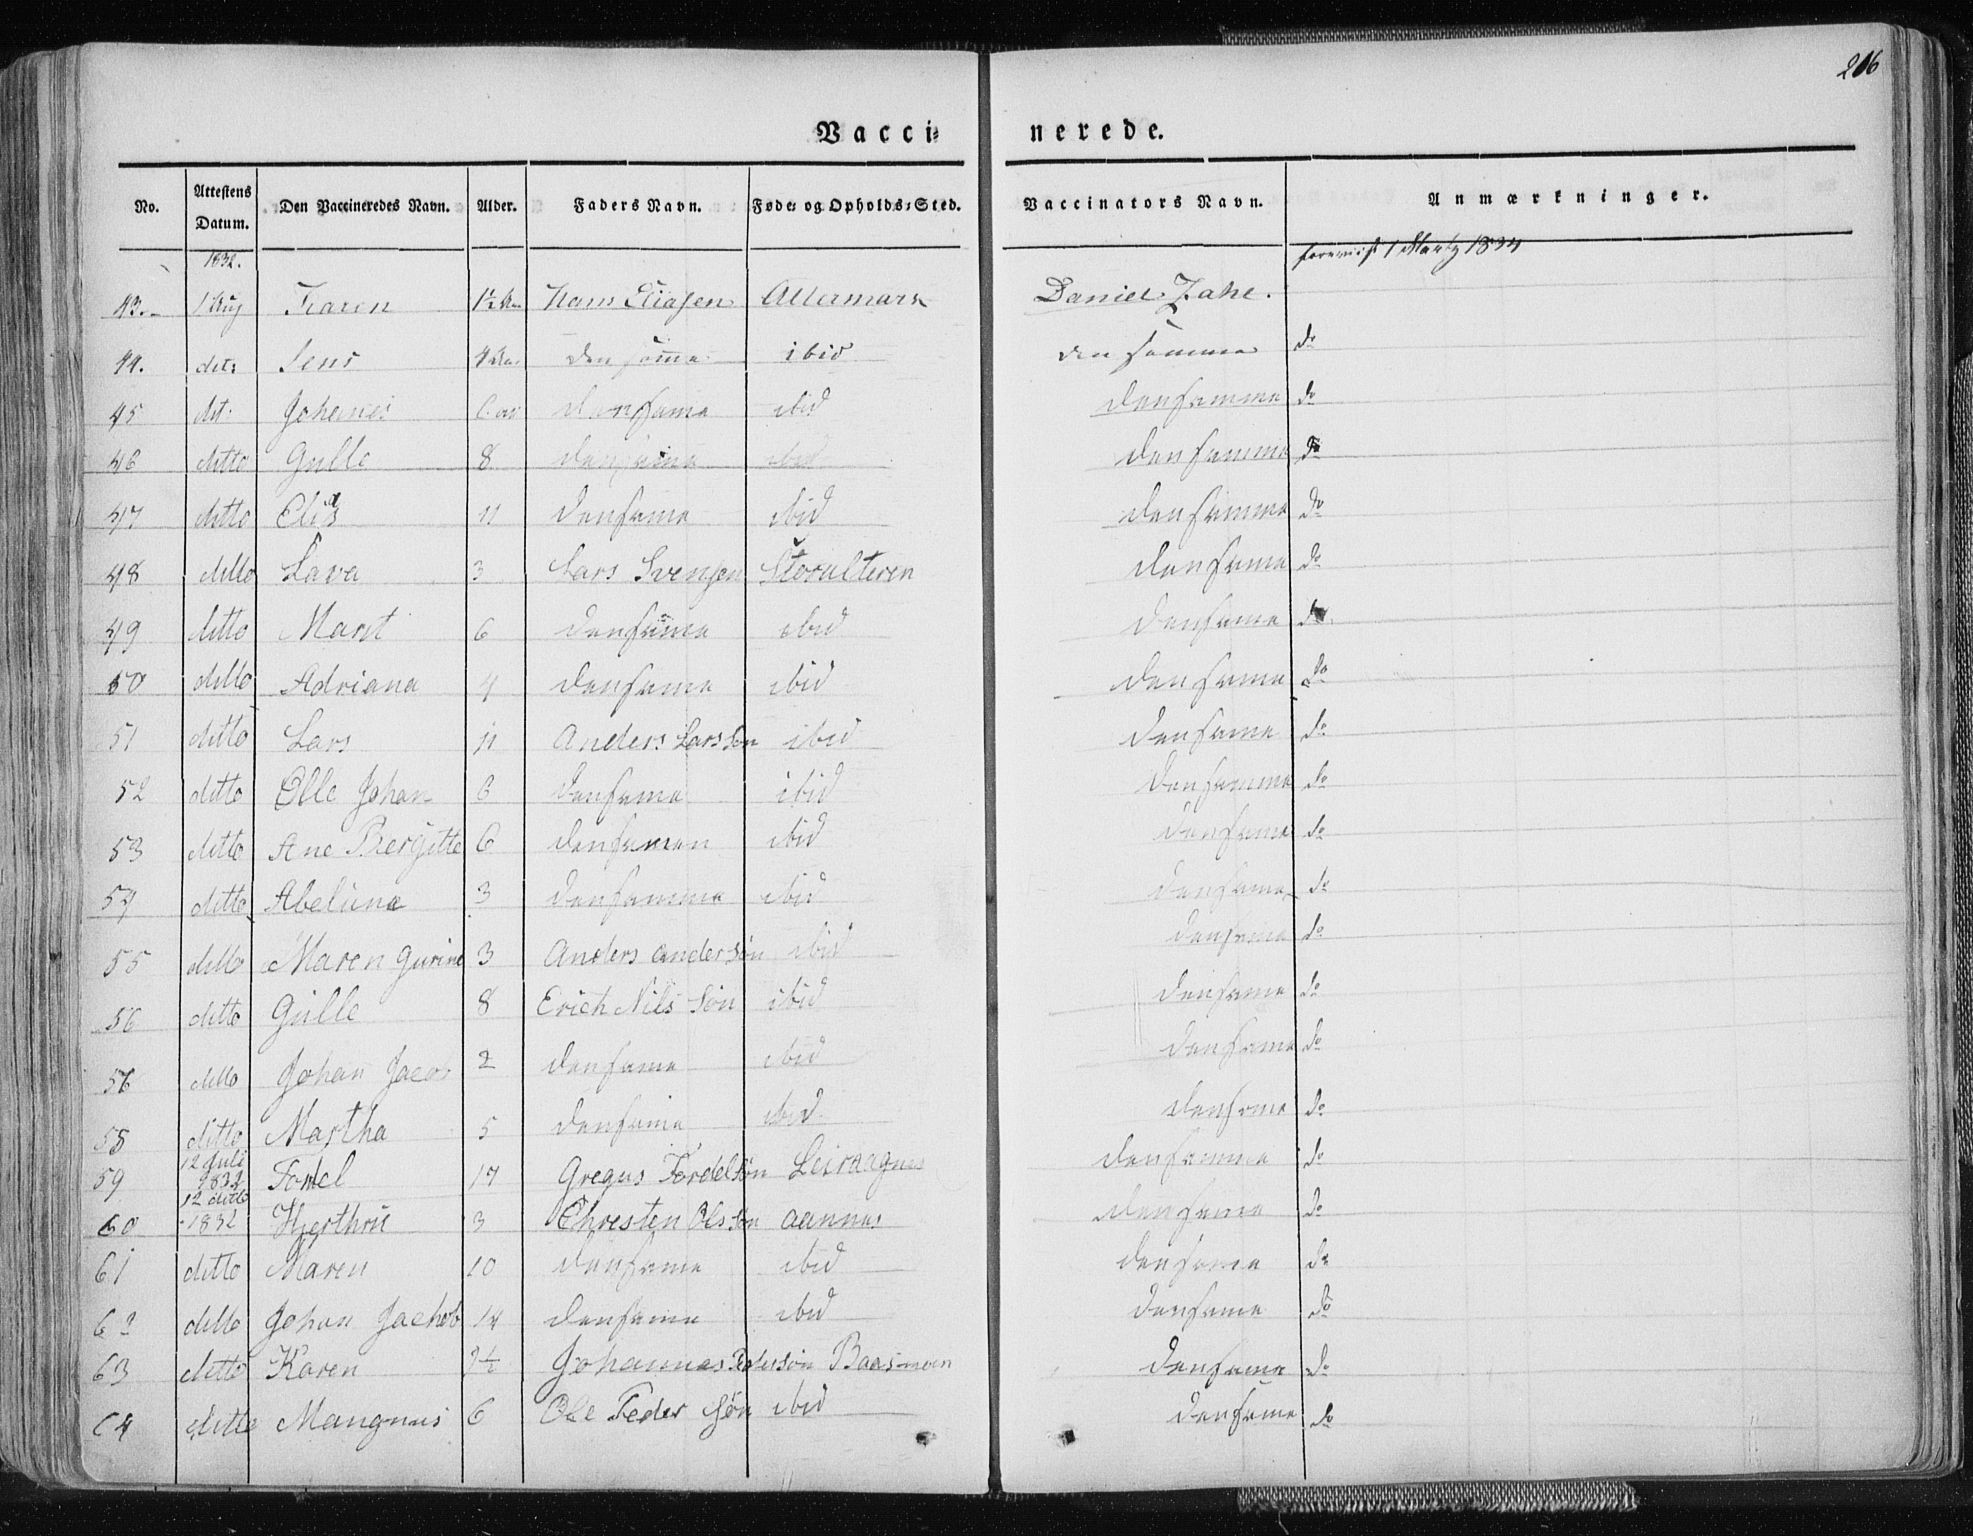 206
Vacci= nerede.
No. Attestens Datum. Den Vaccineredes Navn. Alder. Faders Navn. Føde= og Opholds=Sted. Vaccinators Navn. Anmærkninger.
1832. 1 Martz 1834
43. 1 Aug Karen 1½ Hans Eliasen Altermark Daniel Zahl.
44. det: Jens 4 den same ibid den samme do
45 det. Johanes 6 den same ibid den samme do
46 ditto Gulle 8 den same ibid den samme do
47 ditto Elias 11 den same ibid den samme do
48 ditto Lava 3 Lars Svensen Storalteren den same do
49 ditto Marit 6 den same ibid den same do
50 ditto Adriana 4 den same ibid den same do
51 ditto Lars 11 Anders Larssøn ibid den same do
52 ditto Olle Johan 8 den same ibid den samme do
53 ditto Ane Bergitte 6 den samen ibid den same do
54 ditto Abeluna 3 den samme ibid den same do
55 ditto Maren Gurine 3 Anders Andersøn ibid den same do
56 ditto Gulle 8 Erich Nils Søn ibid den same do
56 ditto Johan Jacob 2 den same ibid den same do
58 ditto Martha 5 den same ibid den same do
59 12 Juli 1832 Fordel 17 Gregus Fordelsøn Leiraagnes den samme do
60 12 ditto 1832 Hjerthru 3 Chresten Olssøn Aannes den same do
61 ditto Maren 10 den same ibid den same do
62 ditto Johan Jachob 14 den same ibid den same do
63 ditto Karen 2½ Johannes Pedersøn Baasmoen den same do
64 ditto Mangnus 6 Ole Peder Søn ibid den same do